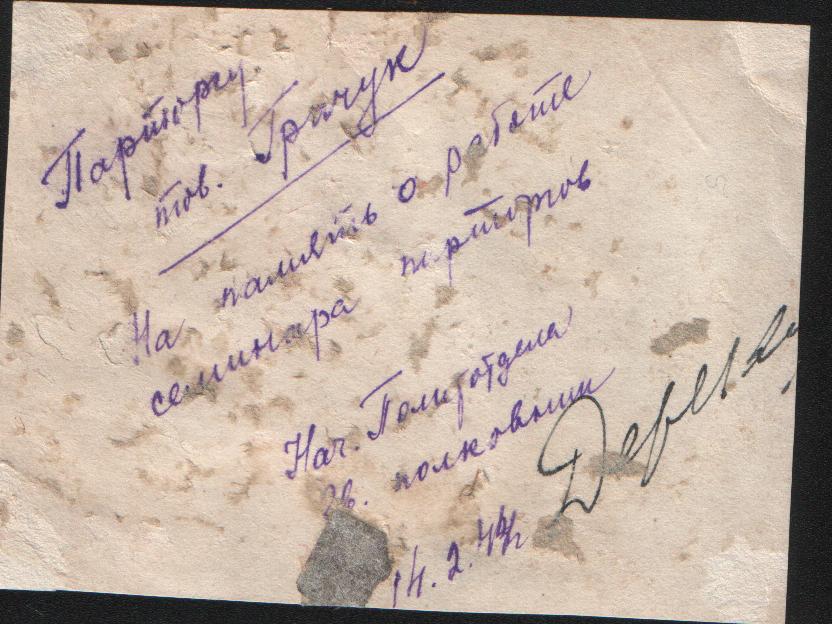 Парторгу
тов. Грачук
На память о работе
семинара парторгов
Нач. Политотдела
гв. полковник
14.2.44г